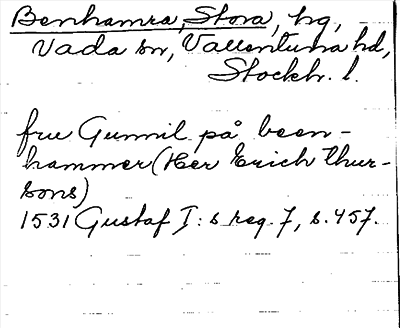 Benhamra, Stora, hg,
Vada sn, Vallentuna hd,
Stockh. l.
fru Gunnil på been-
hammer (Her Erich thur-
sons)
1531 Gustaf I: s reg. 7, s. 457.